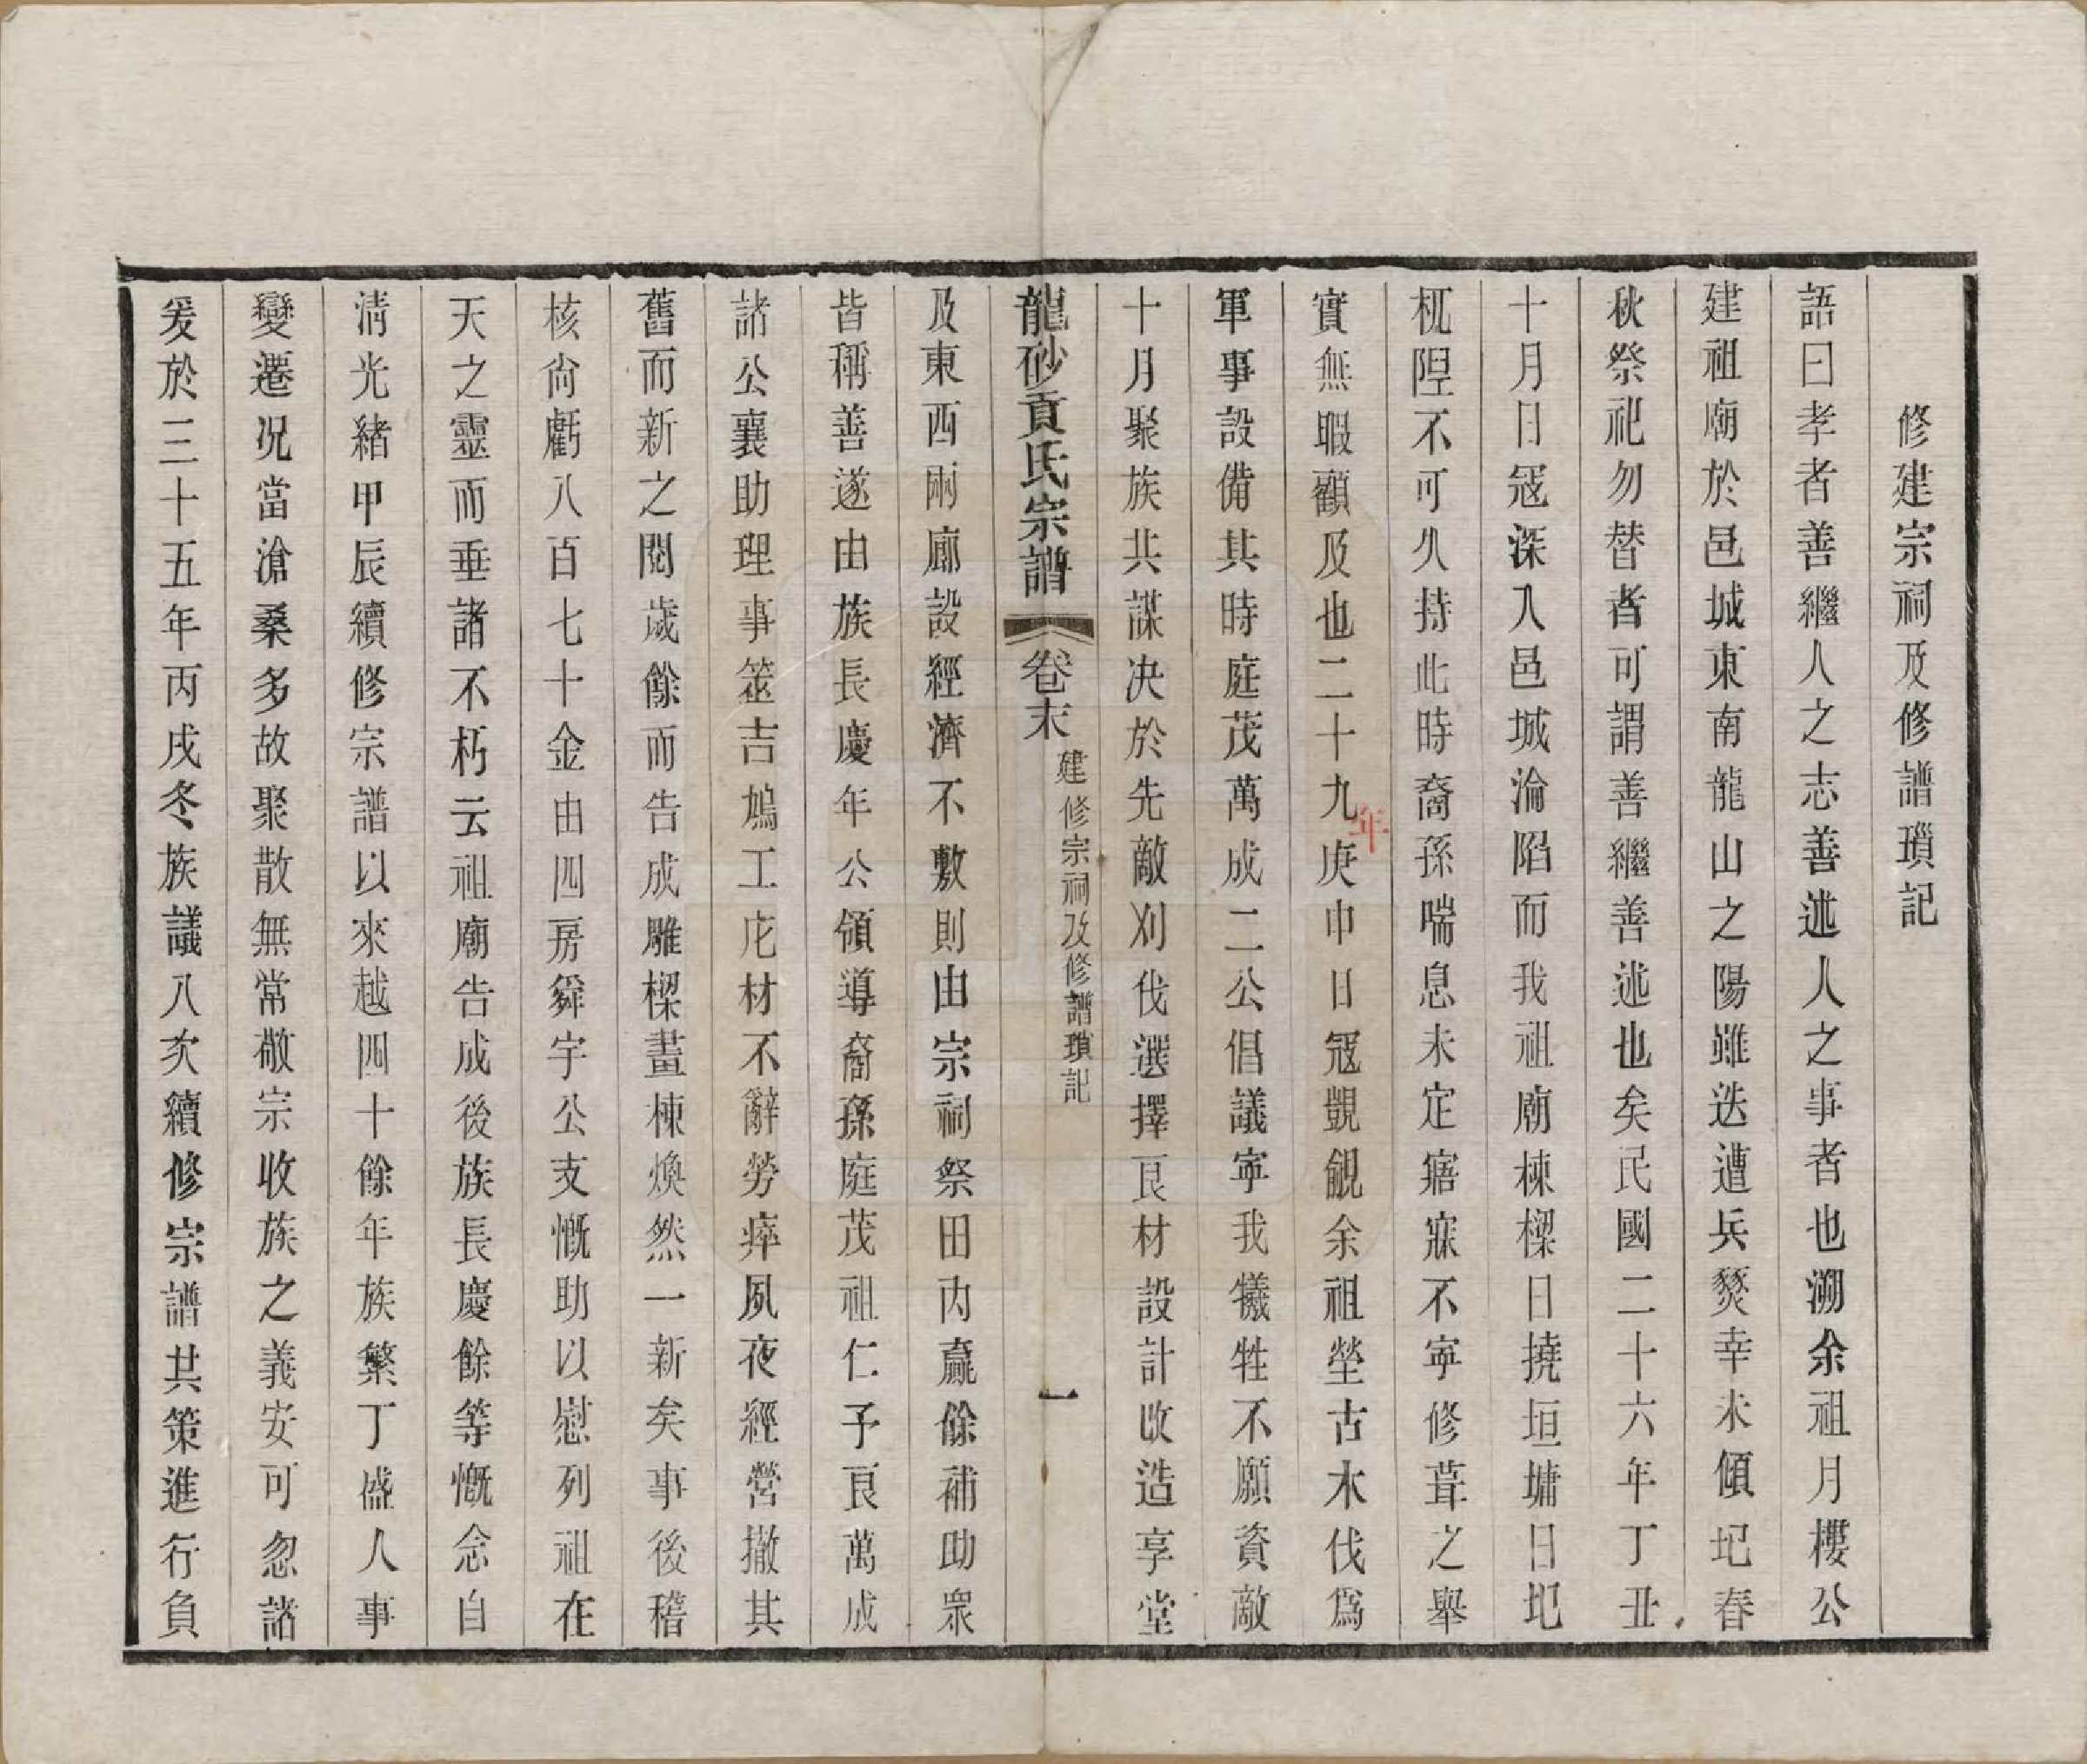 修建宗祠及修譜瑣記
語曰孝者善繼人之志善述人之事者也溯余祖月樓公
建祖廟於邑城東南龍山之陽雖迭遭兵燹幸未傾圮春
秋祭祀勿替者可謂善繼善述也矣民國二十六年丁丑
十月日冦深入邑城淪陷而我祖廟棟樑日撓垣墉日圮
杌隉不可久持此時裔孫喘息未定寤寐不寧修葺之舉
實無暇顧及也二十九年庚巾日冦覬覦余祖塋古木伐爲
軍事設備其時庭茂萬成二公倡議寧我犧牲不願資敵
十月聚族共謀决於先敵刈伐選擇良材設計改造享堂
龍砂貢氏宗譜 卷末 建修宗祠及修譜瑣記 一
及東西兩廊設經濟不敷則由宗祠祭田內贏餘補助衆
皆稱善遂由族長慶年公領導裔孫庭茂祖仁予良萬成
諸公襄助理事筮吉鳩工庀材不辭勞瘁夙夜經營撤其
舊而新之閱歲餘而告成雕樑畫棟煥然一新矣事後稽
核尙虧八百七十金由四房舜宇公支慨助以慰列祖在
天之靈而垂諸不朽云祖廟告成後族長慶餘等慨念自
淸光緒甲辰續修宗譜以來越四十餘年族繁丁盛人事
變遷况當滄桑多故聚散無常敬宗收族之義安可忽諸
爰於三十五年丙戌冬族議八次續修宗譜共策進行負